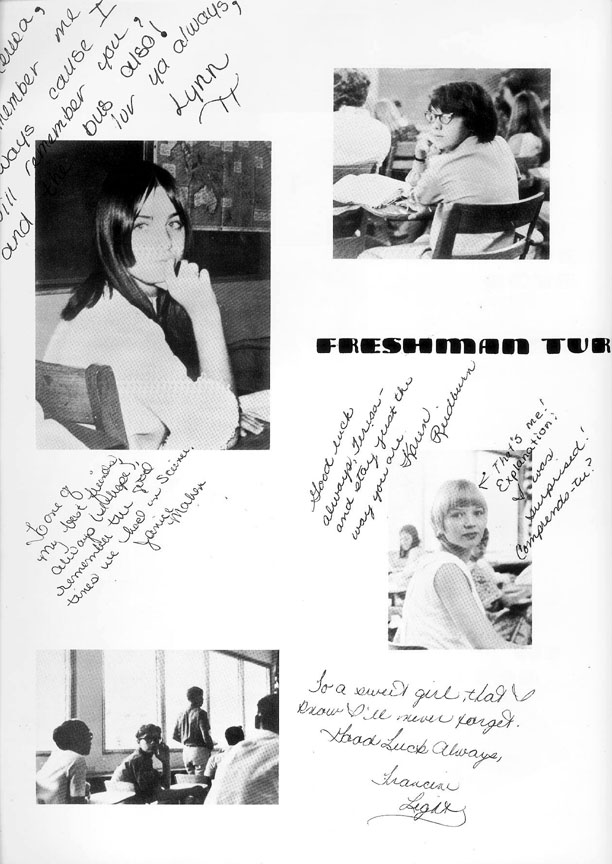 member me
ways cause I
ill remember you,
and the bus also!
luv ya always,
Lynn
FRESHMAN TUR
Good luck
always, Teresa-
and stay just the
way you are
Karen
Reidburn
This is me!
Explanation:
I was
surprised!
Comprends-tu?
To one of
my best friends,
always (I hope),
remember the good
times we had in Science.
Janise
Mahon
To a sweet girl, that I
know I'll never forget.
Good Luck Always,
Francine
Light